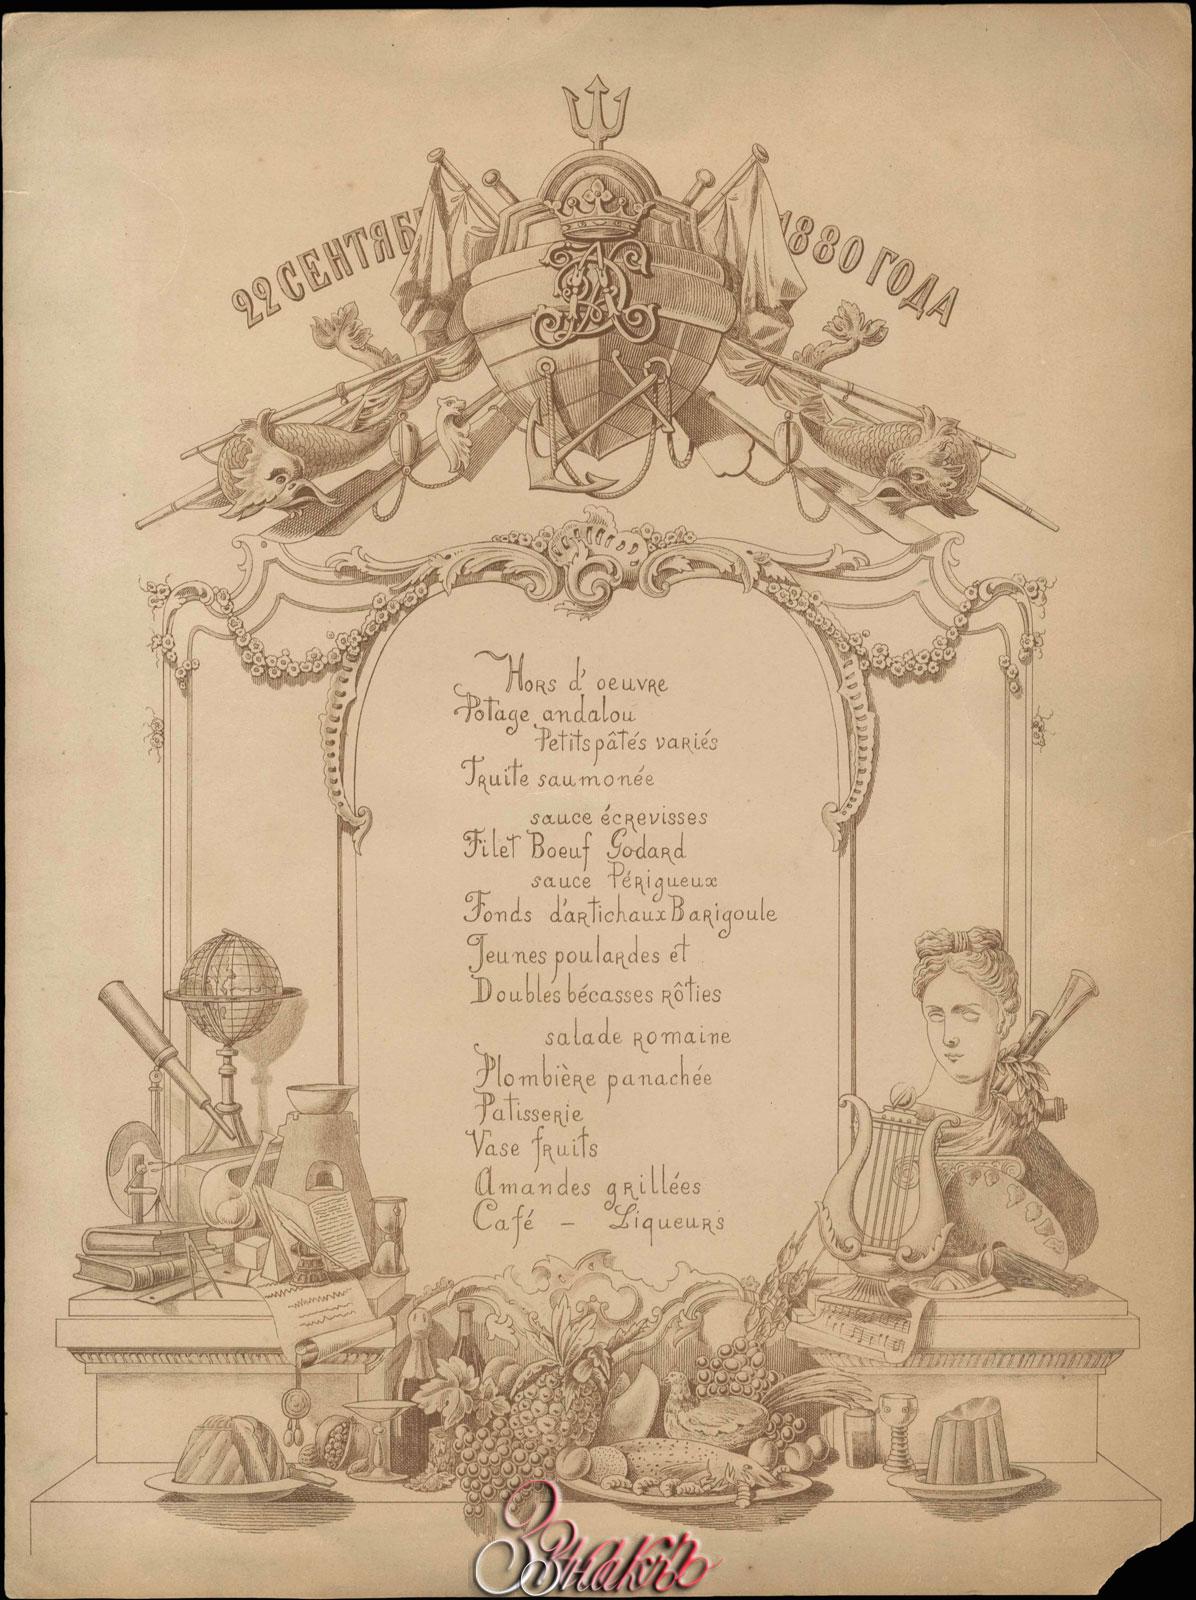 22 СЕНТЯБ 1880 ГОДА
Hors d'oeuvre
Potage andalou
Petits pâtés variés
Truite saumonée
sauce écrevisses
Filet Boeuf Godard
sauce Périgueux
Fonds d'artichaux Barigoule
Jeunes poulardes et
Doubles bécasses rôties
salade romaine
Plombière panachée
Patisserie
Vase fruits
Amandes grillées
Café – Liqueurs
Знакъ